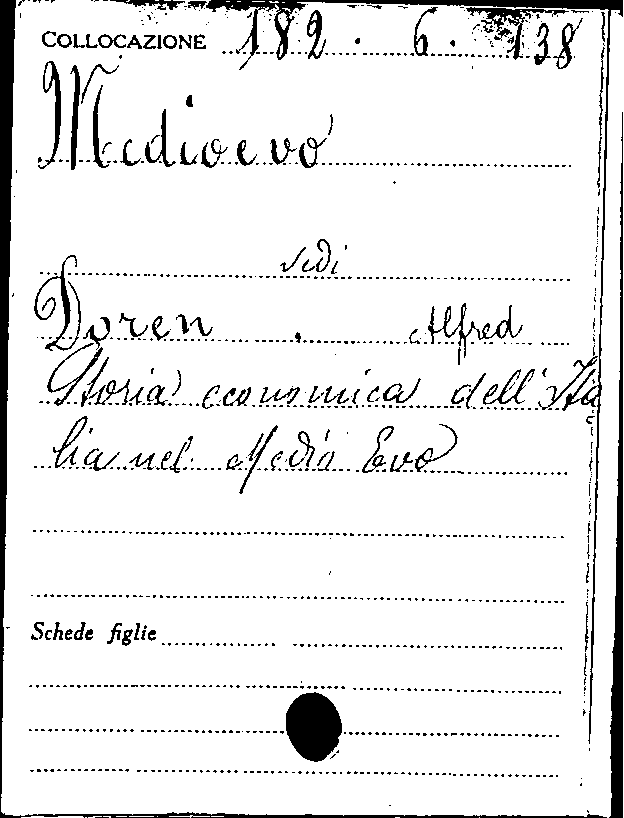 COLLOCAZIONE 182. 6. 138
Medioevo
vedi
Doren, Alfred
Storia economica dell'Ita
lia nel Medio Evo
Schede figlie